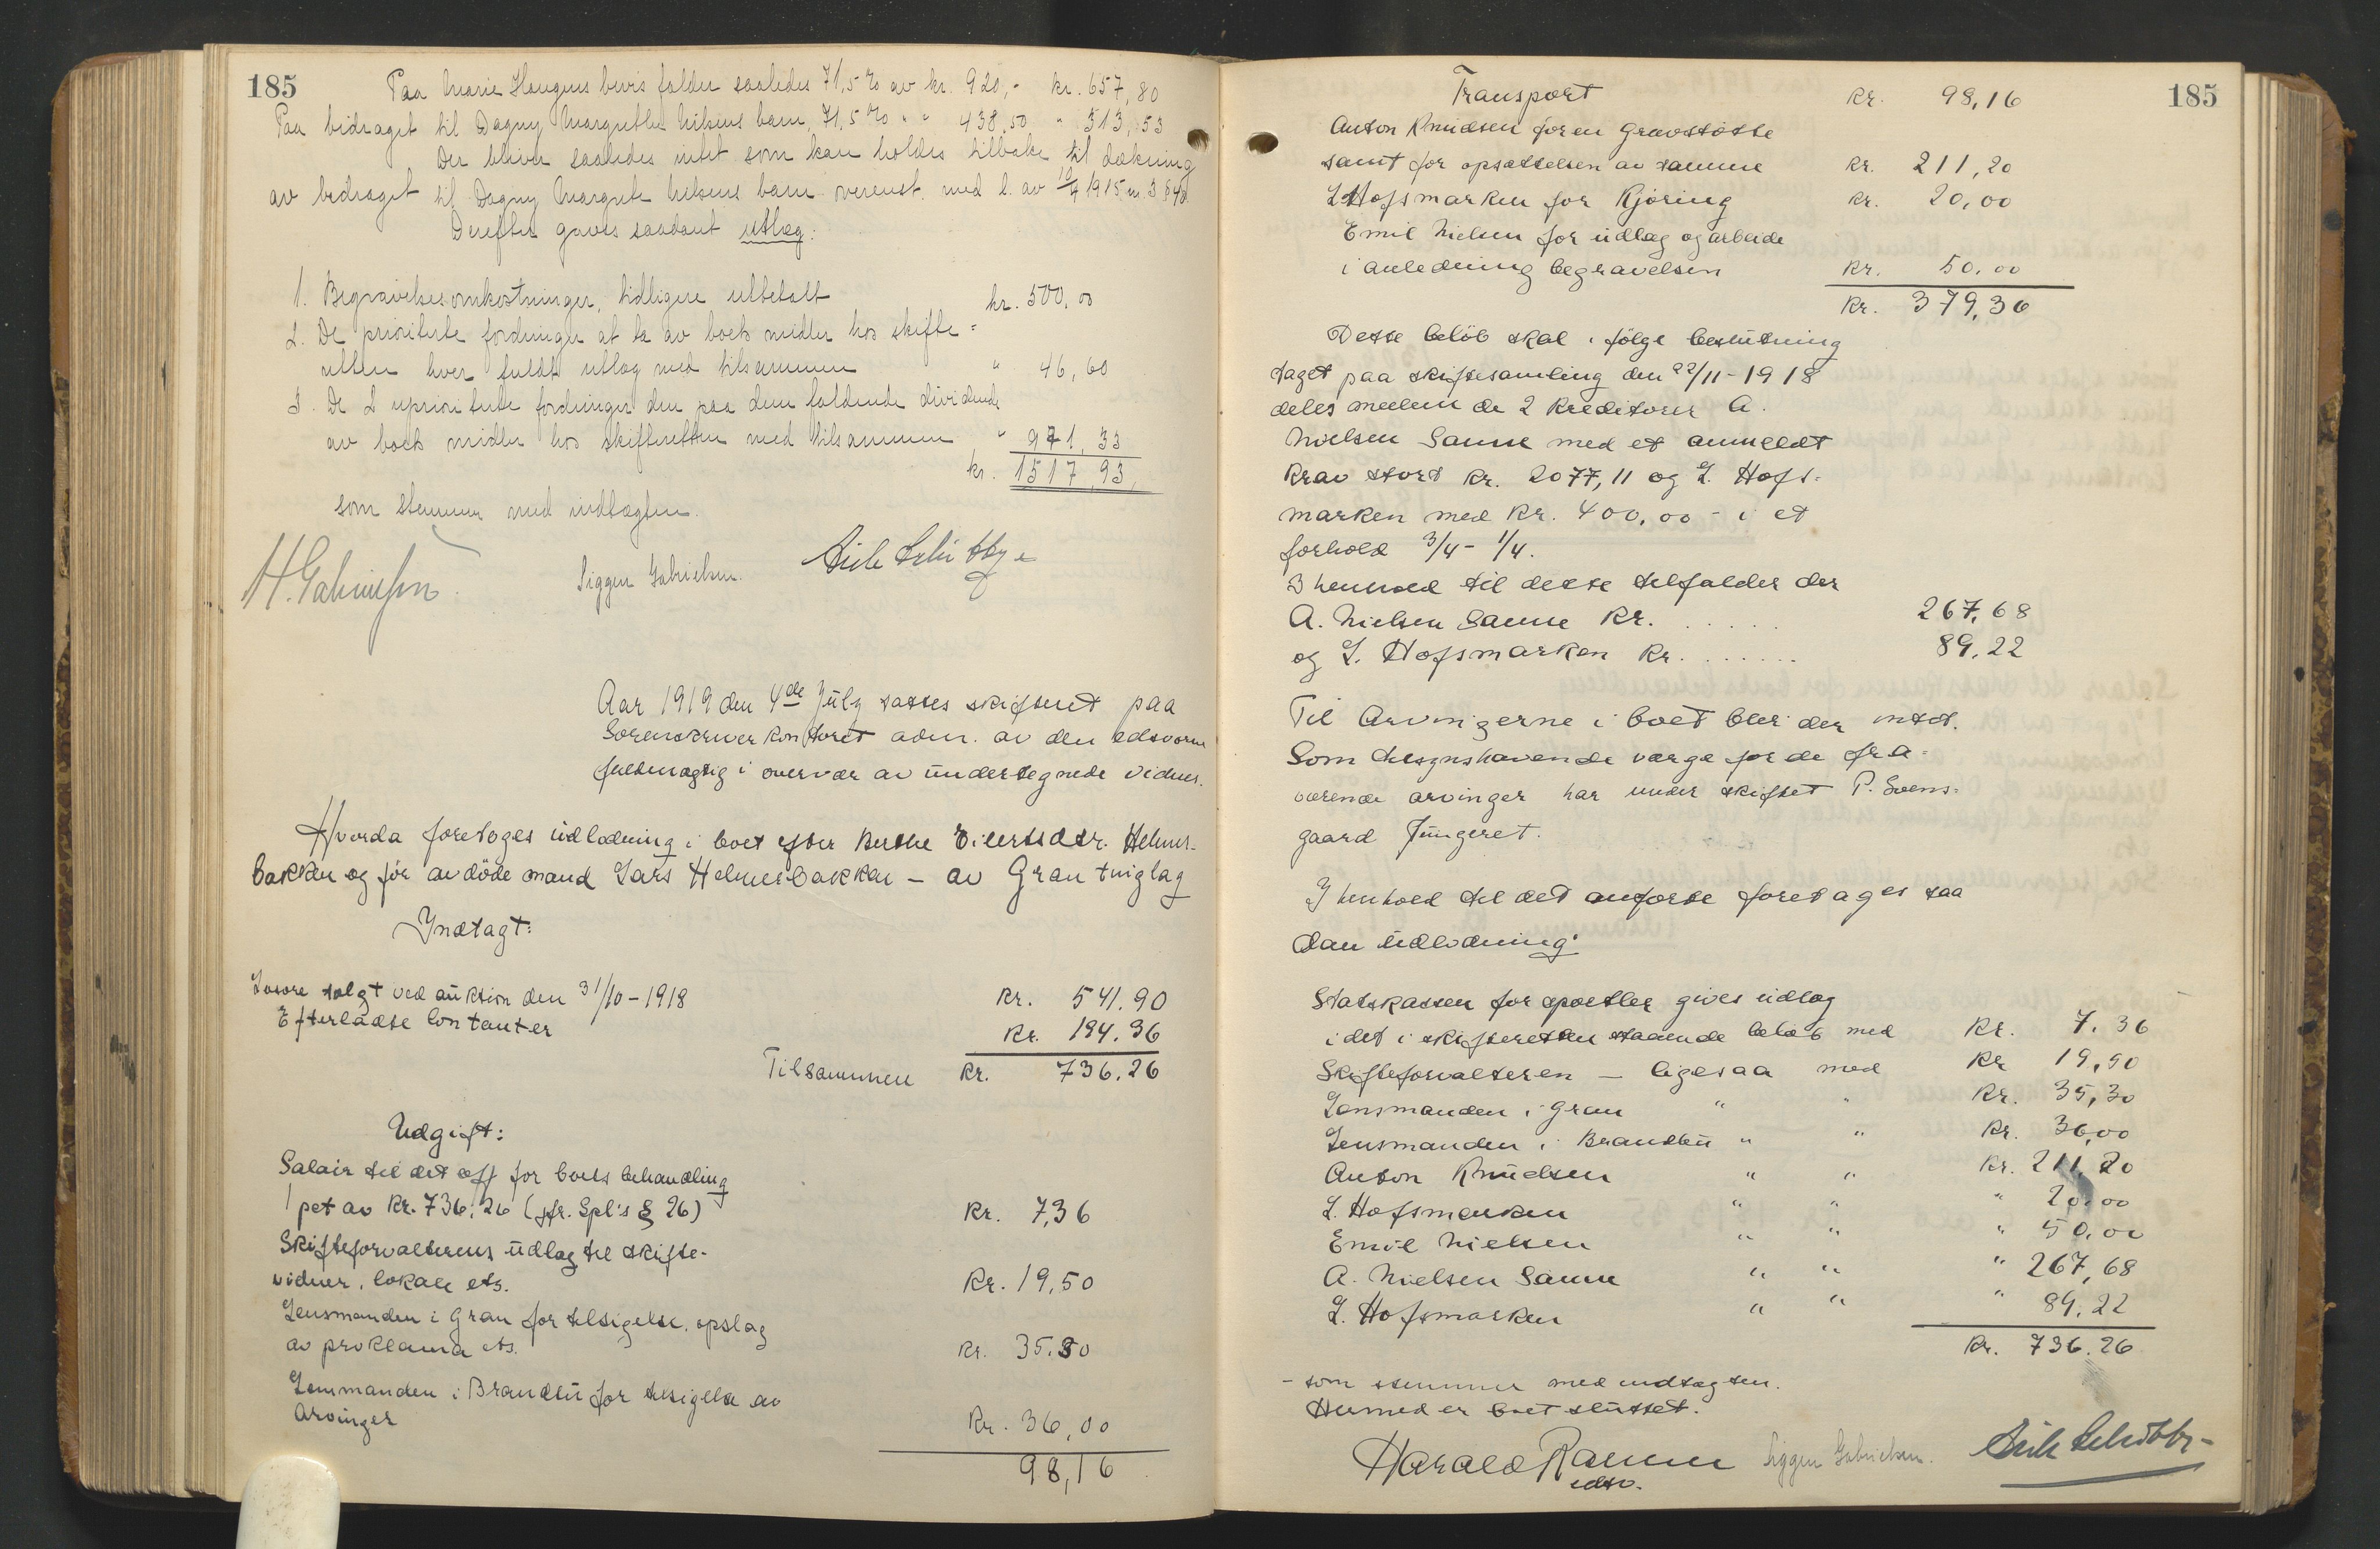 185
Paa Marie Haugens bevis falder saaledes 71,5 % av kr. 920,- kr. 657,80
Paa bidraget til Dagny Margrethe Nilsens barn, 71,5 % " " 438,50 " 313,53
Der bliver saaledes intet som kan holdes tilbake til dækning
av bidraget til Dagny Margrete Nilsens barn overenst. med l. av 10/4 1915 nr. 3 §
Derefter gaves saadant utlæg:
1. Begravelsesomkostninger, tidligere utbetalt kr. 500,00
2. De prioriterte fordringer at ta av boets midler hos skifte=
retten hver fuldt utlæg med tilsammen " 46,60
3. De 2 uprioriterte fordringer den paa dem faldende dividende
av boets midler hos skifteretten med tilsammen " 971,33
kr. 1517,93
som stemmer med indtægten.
Siggen Gabrielsen.
Aar 1919 den 4de July sattes skifteret paa
Sorenskriverkontoret adm. av den edsvorne
fuldmægtig i overvær av undertegnede vidner.
Hvorda foretoges udlodning i boet efter Berthe Eilertsdtr. Helmers-
bakken og før avdöde mand Lars Helmersbakken – av Gran tinglag
Indtægt:
Løsøre solgt ved auktion den 31/10-1918 kr. 541.90
Efterladte contanter kr. 194.36
Tilsammen kr. 736.26
Udgift:
Salair til det off for boets behandling
1 pct av kr. 736,26 (jfr. Spl's § 26) kr. 7,36
Skifteforvalterens udlæg til skifte-
vidner, lokale ets. kr. 19,50
Lensmanden i Gran for tilsigelse, opslag
av proklama ets. kr. 35.30
Lensmanden i Brandbu for tilsigelse av
arvinger kr. 36,00
98,16
185
Transport kr. 98,16
Anton Knudsen for en gravstötte
samt for opsættelsen av samme kr. 211,20
L Hofsmarken for kjöring kr. 20,00
Emil Nielsen for udlæg og arbeide
i anledning begravelsen kr. 50.00
kr. 379,36
Dette belöb skal i følge beslutning
taget paa skiftesamling den 22/11-1918
deles mellem de 2 kreditorer A.
Nielsen Sanne med et anmeldt
krav stort kr. 2077,11 og L. Hofs-
marken med kr. 400,00 - i et
forhold 3/4 - 1/4.
I henhold til dette tilfalder der
A. Nielsen Sanne kr. ..... 267,68
og L. Hofsmarken kr. ...... 89.22
Til Arvingerne i boet blir der intet.
Som tilsynshavende værge for de fra-
værende arvinger har under skiftet P. Svens-
gaard fungeret.
I henhold til det anførte foretages saa
dan udlodning:
Statskassen for sportler gives udlæg
i det i skifteretten staaende beløb med kr. 7.36
Skifteforvalteren – ligesaa med kr 19,50
Lensmanden i Gran " " kr. 35,30
Lensmanden i Brandbu " " kr. 36,00
Anton Knudsen " " kr. 211,20
L. Hofsmarken " " " 20.00
Emil Nielsen " " " 50.00
A. Nielsen Sanne " " " 267,68
L. Hofsmarken " " " 89.22
kr. 736.26
- som stemmer med indtægten.
Hermed er boet sluttet.
Harald Ramm Siggen Gabrielsen.
edsv.